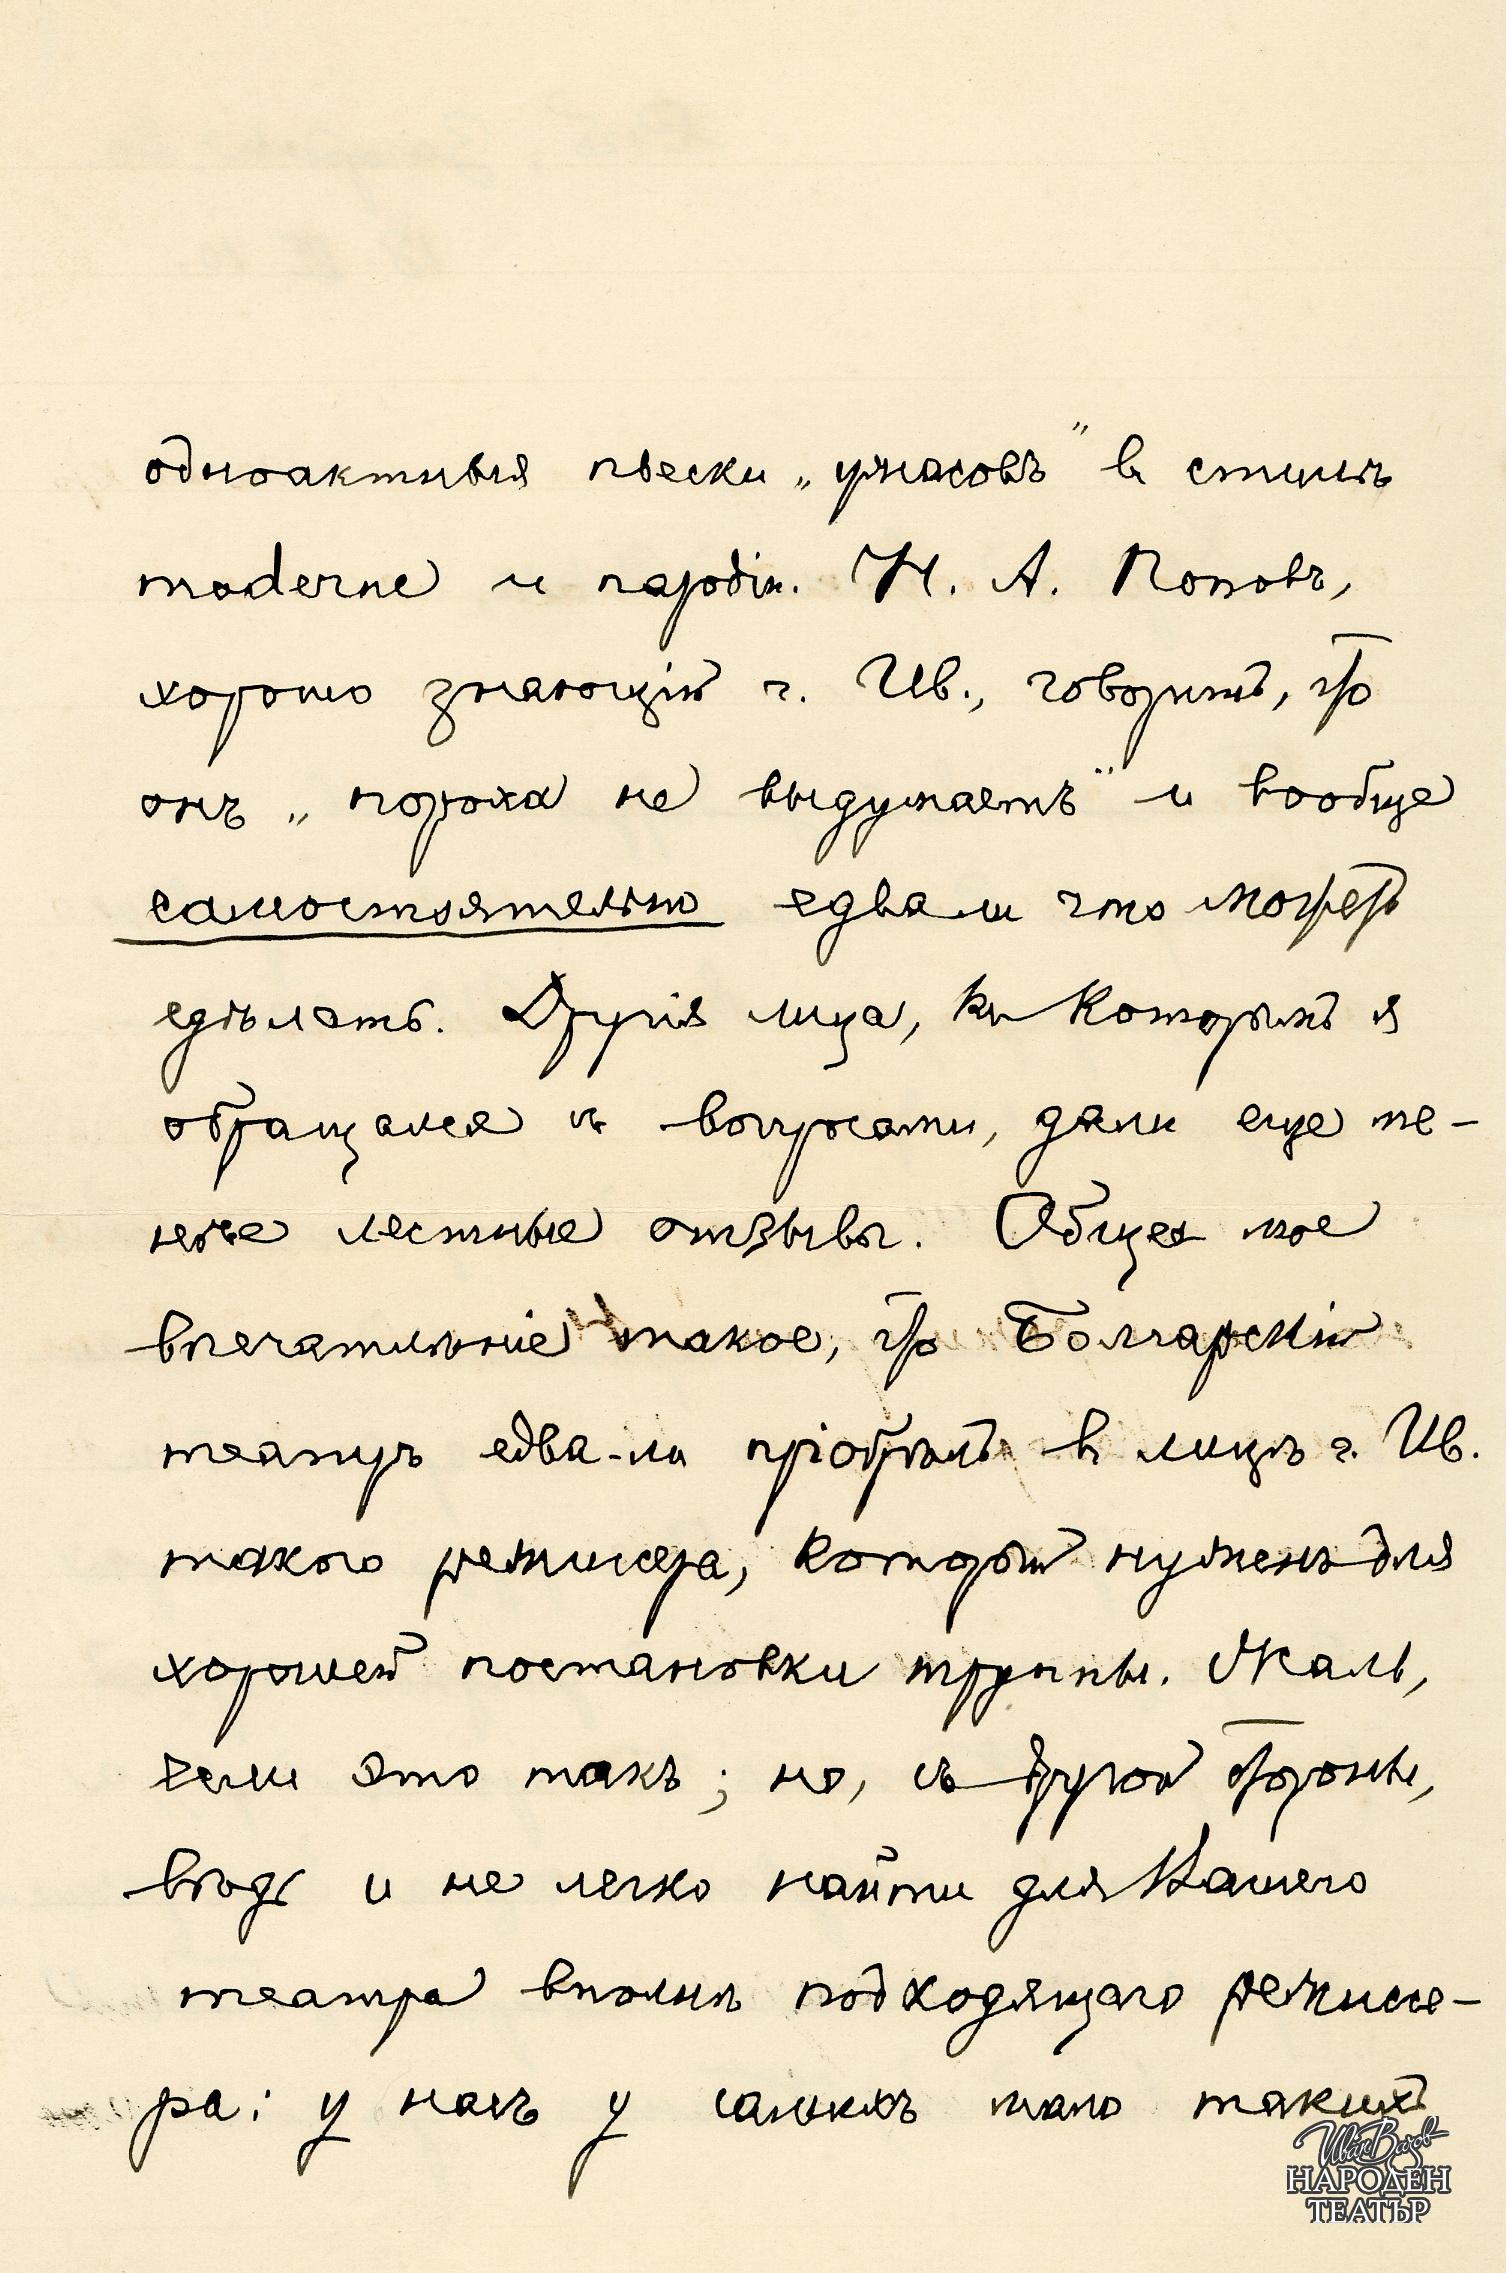 одноактныя пьески „ужасовъ" въ стилѣ
moderne и пародіи. Н. А. Поповъ,
хорошо знающій г. Ив., говоритъ, что
онъ „пороха не выдумаетъ" и вообще
самостоятельно едва ли что можетъ
сдѣлать. Другія лица, къ которымъ я
обращался съ вопросами, дали еще ме-
нѣе лестные отзывы. Общее мое
впечатлѣніе такое, что Болгарскій
театръ едва-ли пріобрѣлъ въ лицѣ г. Ив.
такого режисера, который нуженъ для
хорошей постановки труппы. Жаль,
если это такъ; но, съ другой стороны,
вѣдь и не легко найти для Вашего
театра вполнѣ подходящаго режиссе-
ра: у насъ у самихъ мало такихъ
Иван Вазов
НАРОДЕН
ТЕАТЪР